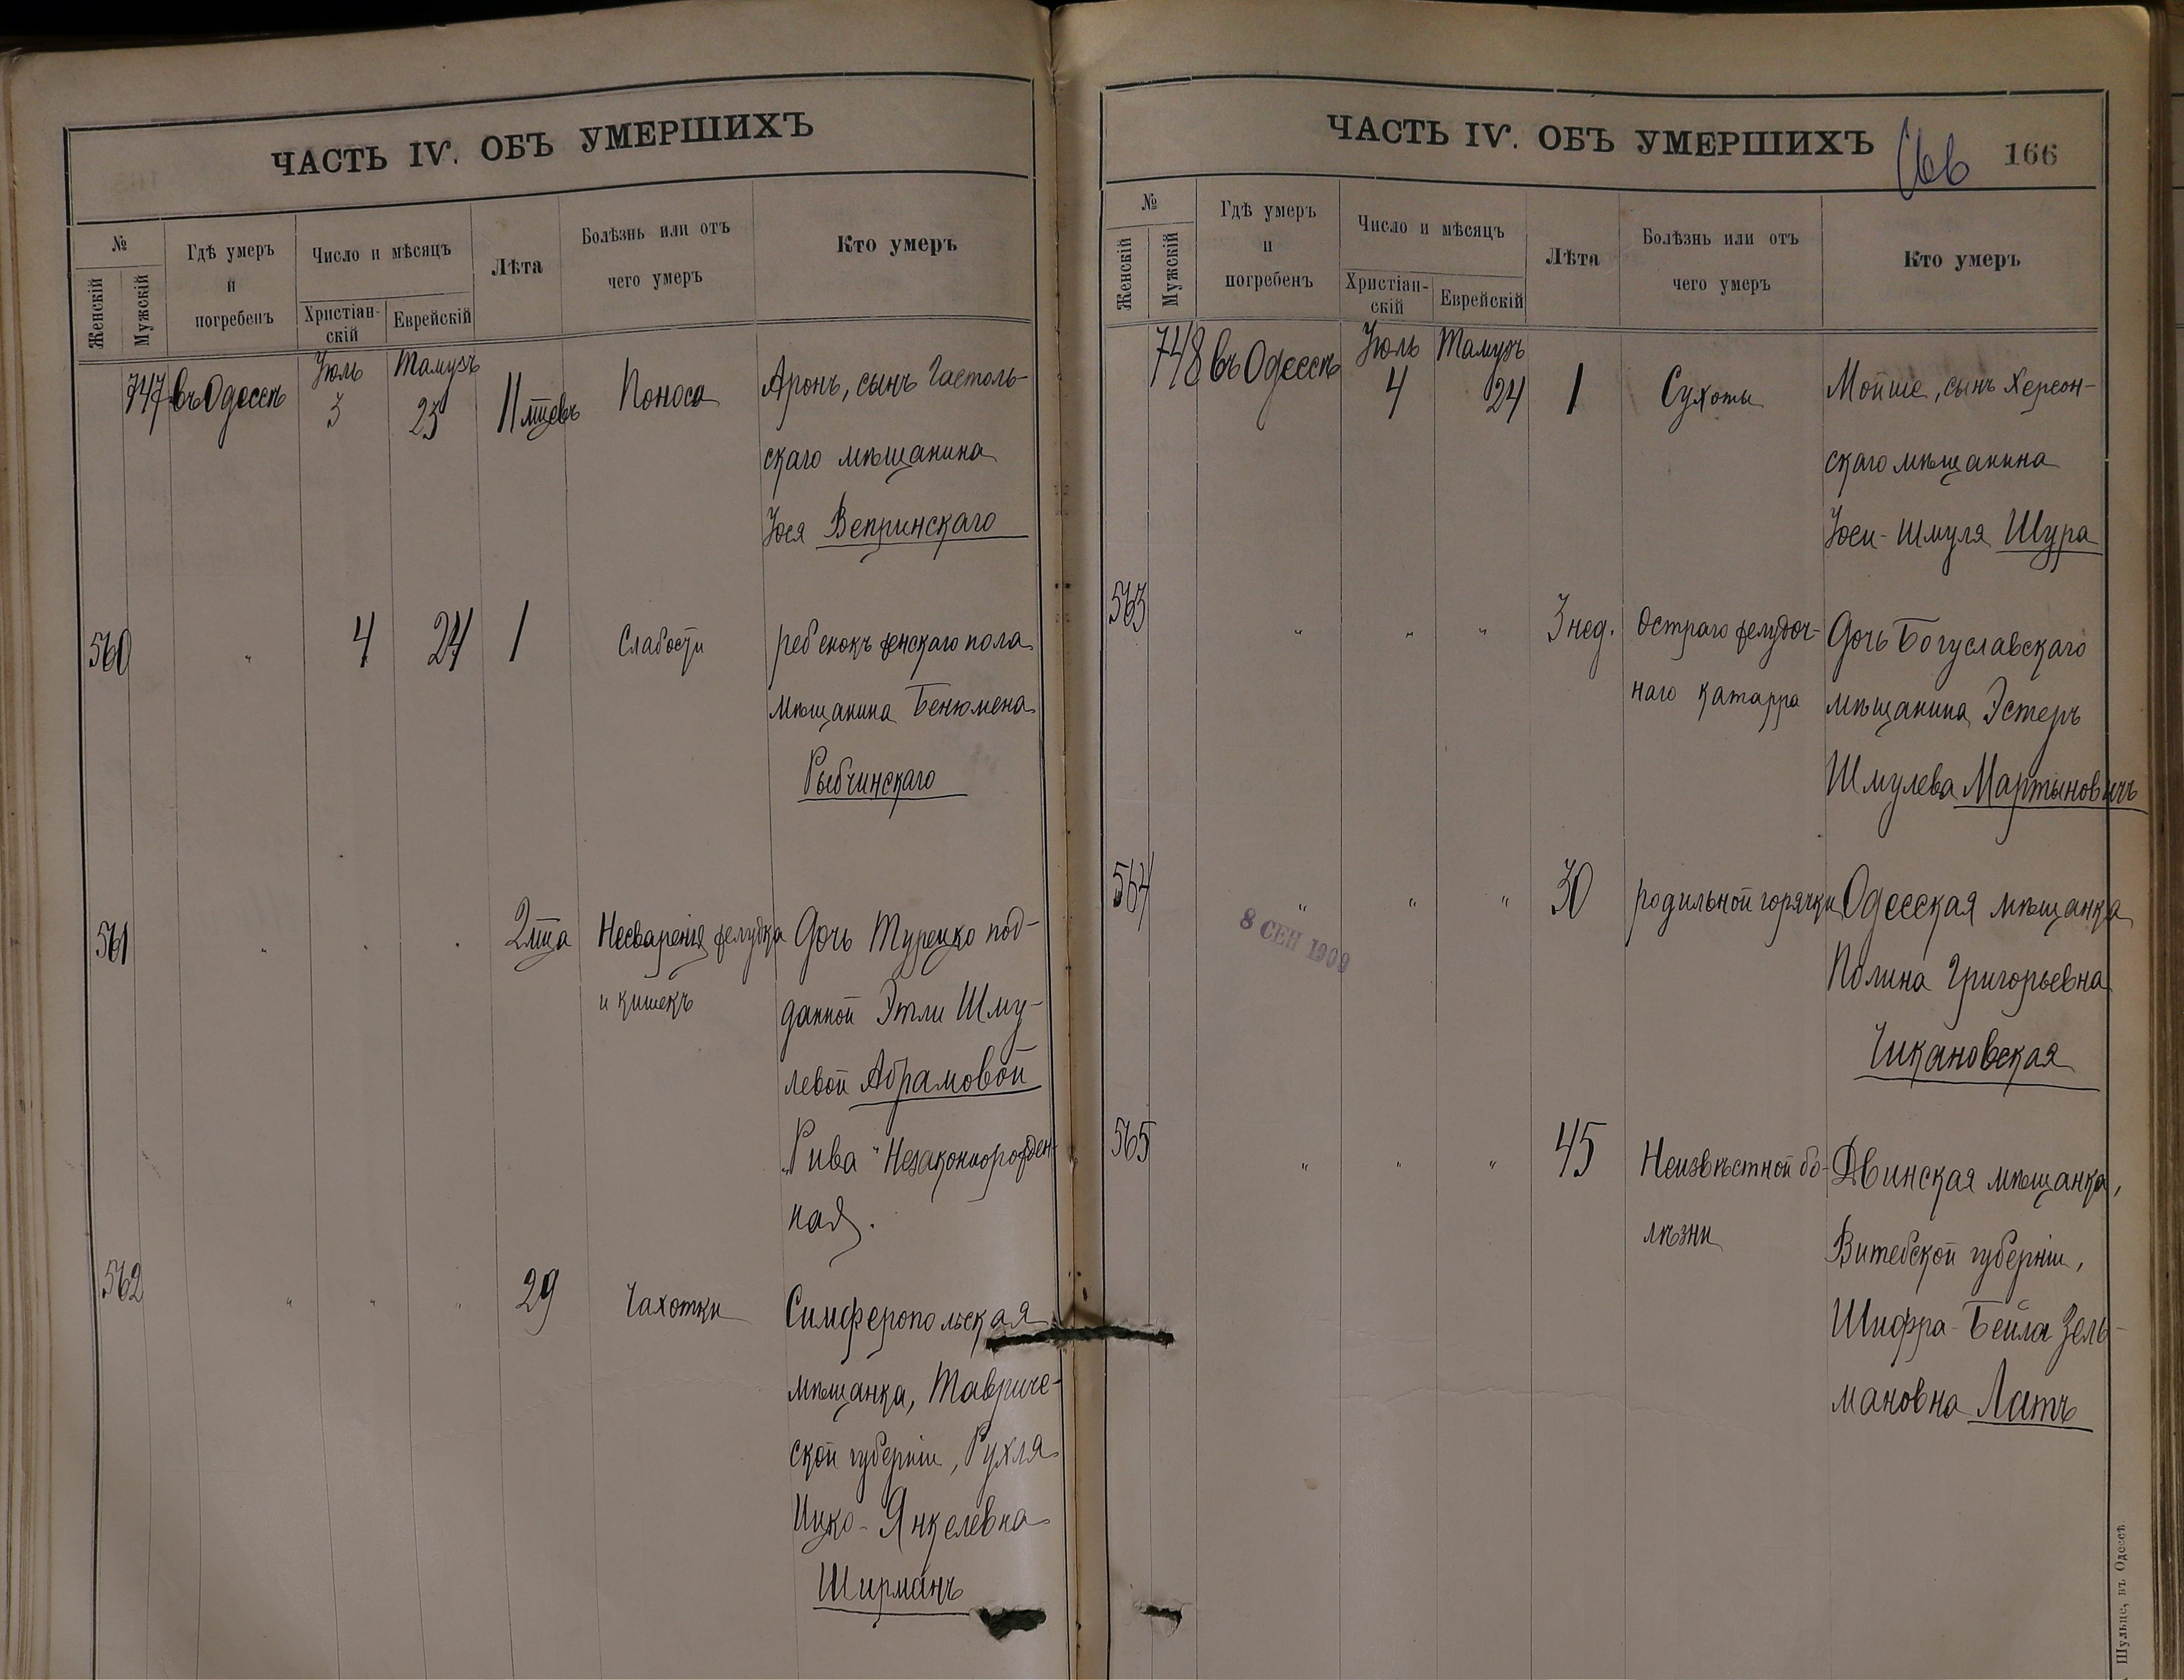 ЧАСТЬ IV. ОБЪ УМЕРШИХЪ
№
Женскій
Мужскій
Гдѣ умеръ
и
погребенъ
Число и мѣсяцъ
Христіан-
скій
Еврейскій
Лѣта
Болѣзнь или отъ
чего умеръ
Кто умеръ
747 въ Одессѣ Іюль 3 Тамузъ 23 11 мцевъ Поноса Аронъ, сынъ Гастоль-
скаго мѣщанина
Іося Вепринскаго
560 " 4 24 1 Слабости ребенокъ женскаго пола
мѣщанина Бенюмена
Рыбчинскаго
561 " " " 2 мца Несваренія желудка Дочь Турецко под-
и кишекъ данной Этли Шму-
левой Абрамовой
"Рива" Незаконнорожден-
ная.
562 " " " 29 Чахотки Симферопольская
мѣщанка, Тавриче-
ской губерніи, Рухля
Ицко-Янкелевна
Ширманъ
ЧАСТЬ IV. ОБЪ УМЕРШИХЪ
166 166
№
Женскій
Мужскій
Гдѣ умеръ
и
погребенъ
Число и мѣсяцъ
Христіан-
скій
Еврейскій
Лѣта
Болѣзнь или отъ
чего умеръ
Кто умеръ
748 въ Одессѣ Іюль 4 Тамузъ 24 1 Сухоты Мойше, сынъ Херсон-
скаго мѣщанина
Іоси-Шмуля Шура
563 " " " 3 нед. Остраго желудоч- Дочь Богуславскаго
наго катарра мѣщанина Эстеръ
Шмулева Мартыновичъ
564 " " " 30 родильной горячки Одесская мѣщанка
8 СЕН 1909
Полина Григорьевна
Чикановская
565 " " " 45 Неизвѣстной бо- Двинская мѣщанка,
лѣзни Витебской губерніи,
Шифра-Бейла Зель-
мановна Латъ
Шульце, въ Одессѣ